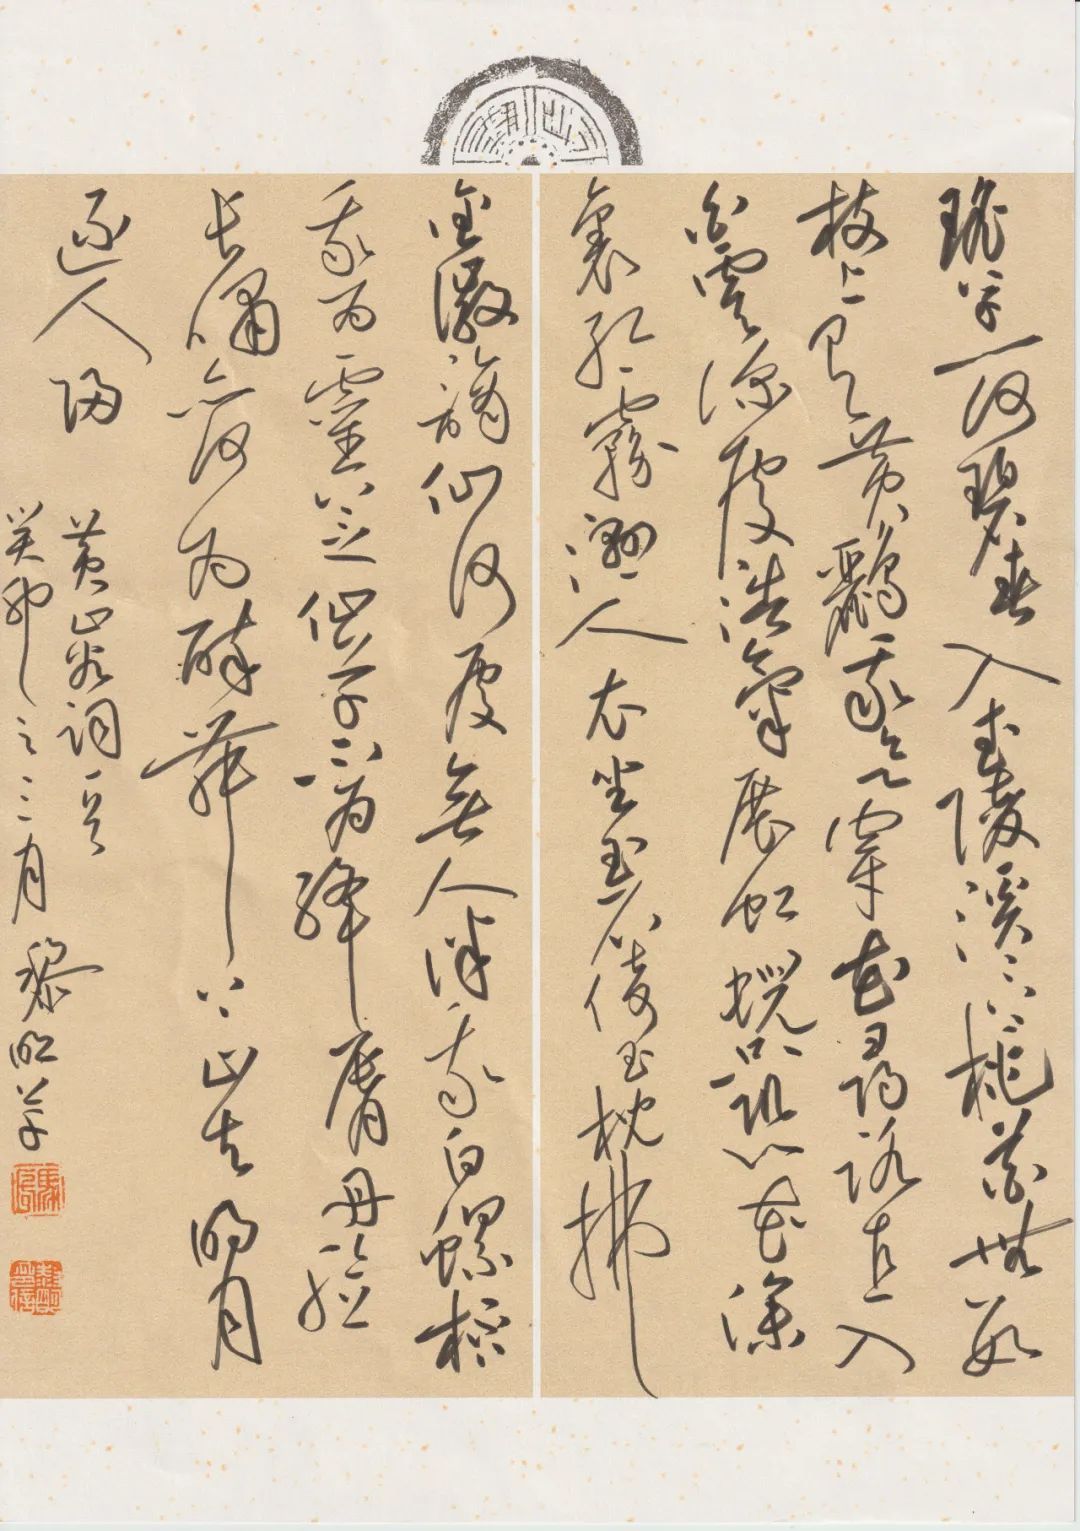 瑤草一何碧春入武陵溪〻上桃花無數
枝上有黃鸝我欲穿花尋路直入
白雲深處浩氣展虹蜺祇恐花深
裏紅霧濕人衣坐玉石倚玉枕拂
金徽謫仙何處無人伴我白螺杯
我為靈芝仙草不為絳唇丹臉
長嘯亦何為醉舞下山去明月
逐人歸
黃山谷詞一首
癸卯之三月黎明草